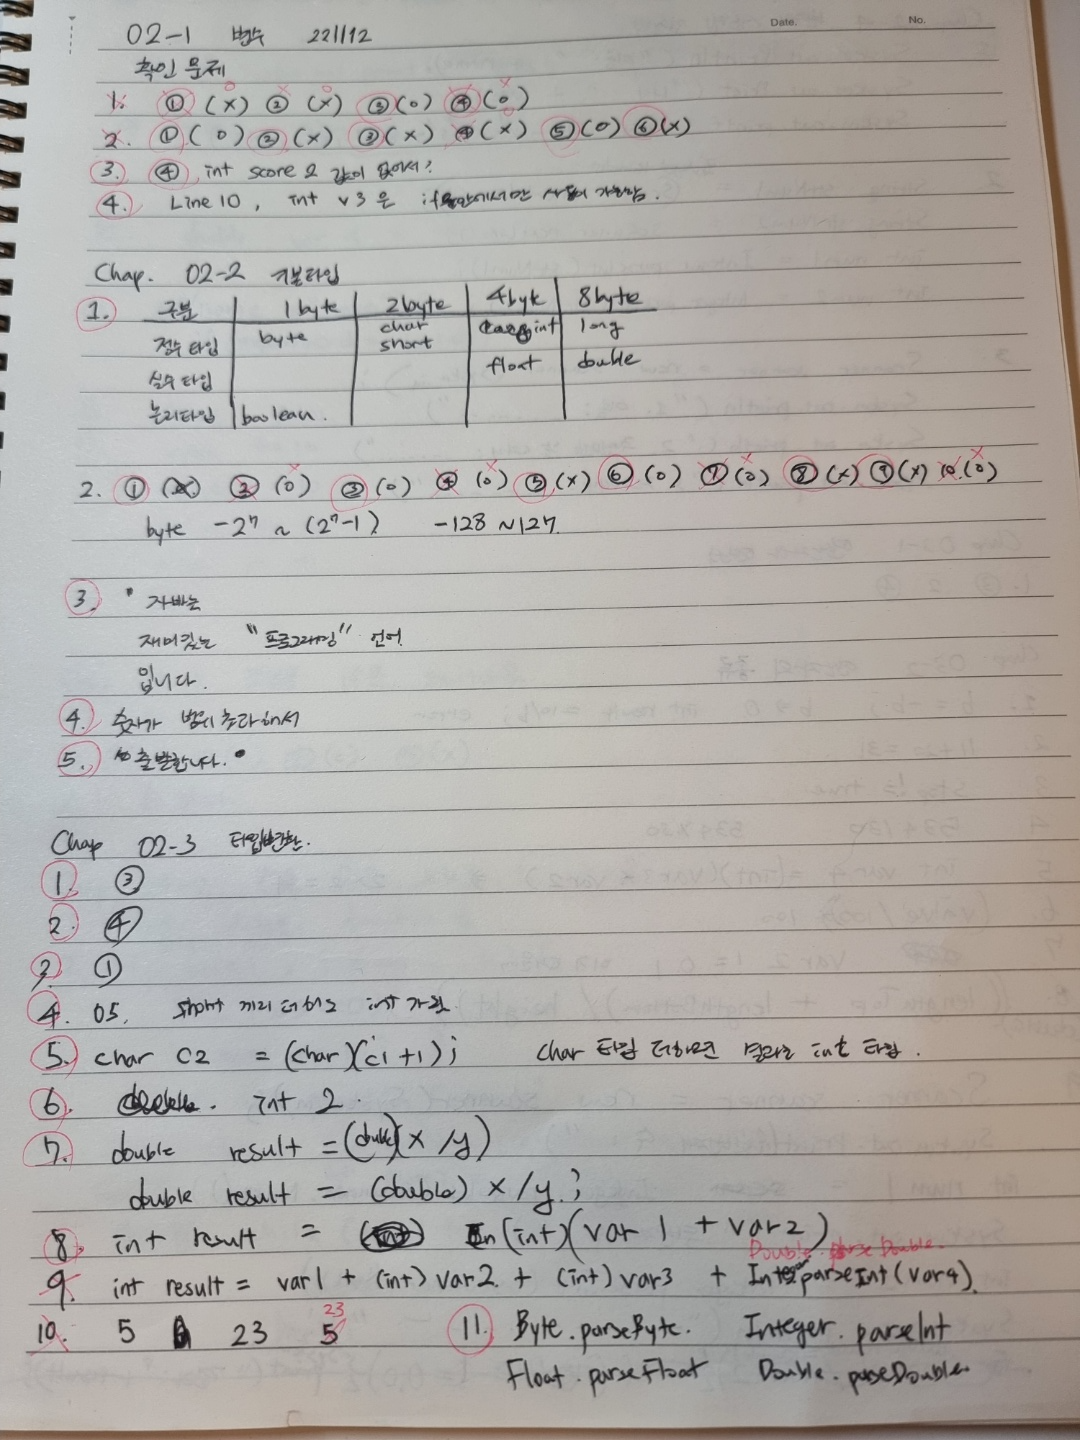 Date. No.
02-1 변수 221112
확인 문제
1. ① (X) ② (X) ③ (O) ④ (O)
2. ① (O) ② (X) ③ (X) ④ (X) ⑤ (O) ⑥ (X)
3. ④, int score 2 값이 없어서?
4. Line 10, int v3은 if문안에서만 사용이 가능함.
Chap. 02-2 기본타입
1. 구분 1 byte 2 byte 4 byte 8 byte
정수 타입 byte char short int long
실수 타입 float double
논리타입 boolean.
2. ① ② (O) ③ (O) ④ (O) ⑤ (X) ⑥ (O) ⑦ (O) ⑧ (X) ⑨ (X) 10. (O)
byte -2⁷ ~ (2⁷-1) -128 ~ 127
3. " 자바는
재미있는 "프로그래밍" 언어
입니다.
4. 숫자가 범위 초과해서
5. 출발합니다.
Chap 02-3 타입변환.
1. ③
2. ④
3. ①
4. 05. short 끼리 더해도 int 가 됨.
5. char c2 = (char)(c1+1); char 타입 더하면 결과는 int 타입.
6. int 2.
7. double result = (double)(x / y)
double result = (double) x / y;
8. int result = (int)(var 1 + var2)
Double.parseDouble.
9. int result = var1 + (int) var2 + (int) var3 + Integer.parseInt(var4)
23
10. 5 23 5 11. Byte.parseByte. Integer.parseInt
Float.parseFloat Double.parseDouble